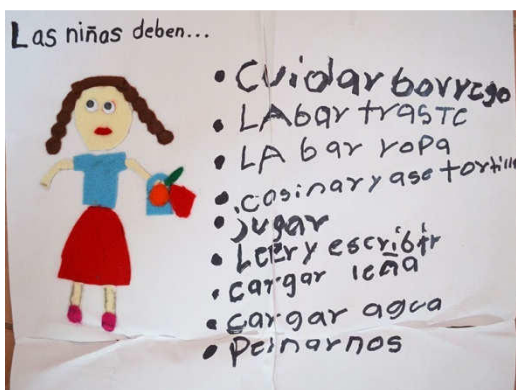 Las niñas deben...
• Cuidar borrego
• LAbar trasTe
• LA bar ropa
• cosinar y ase tortilla
• jugar
• Leer y escribir
• cargar leña
• cargar agua
• peinarnos